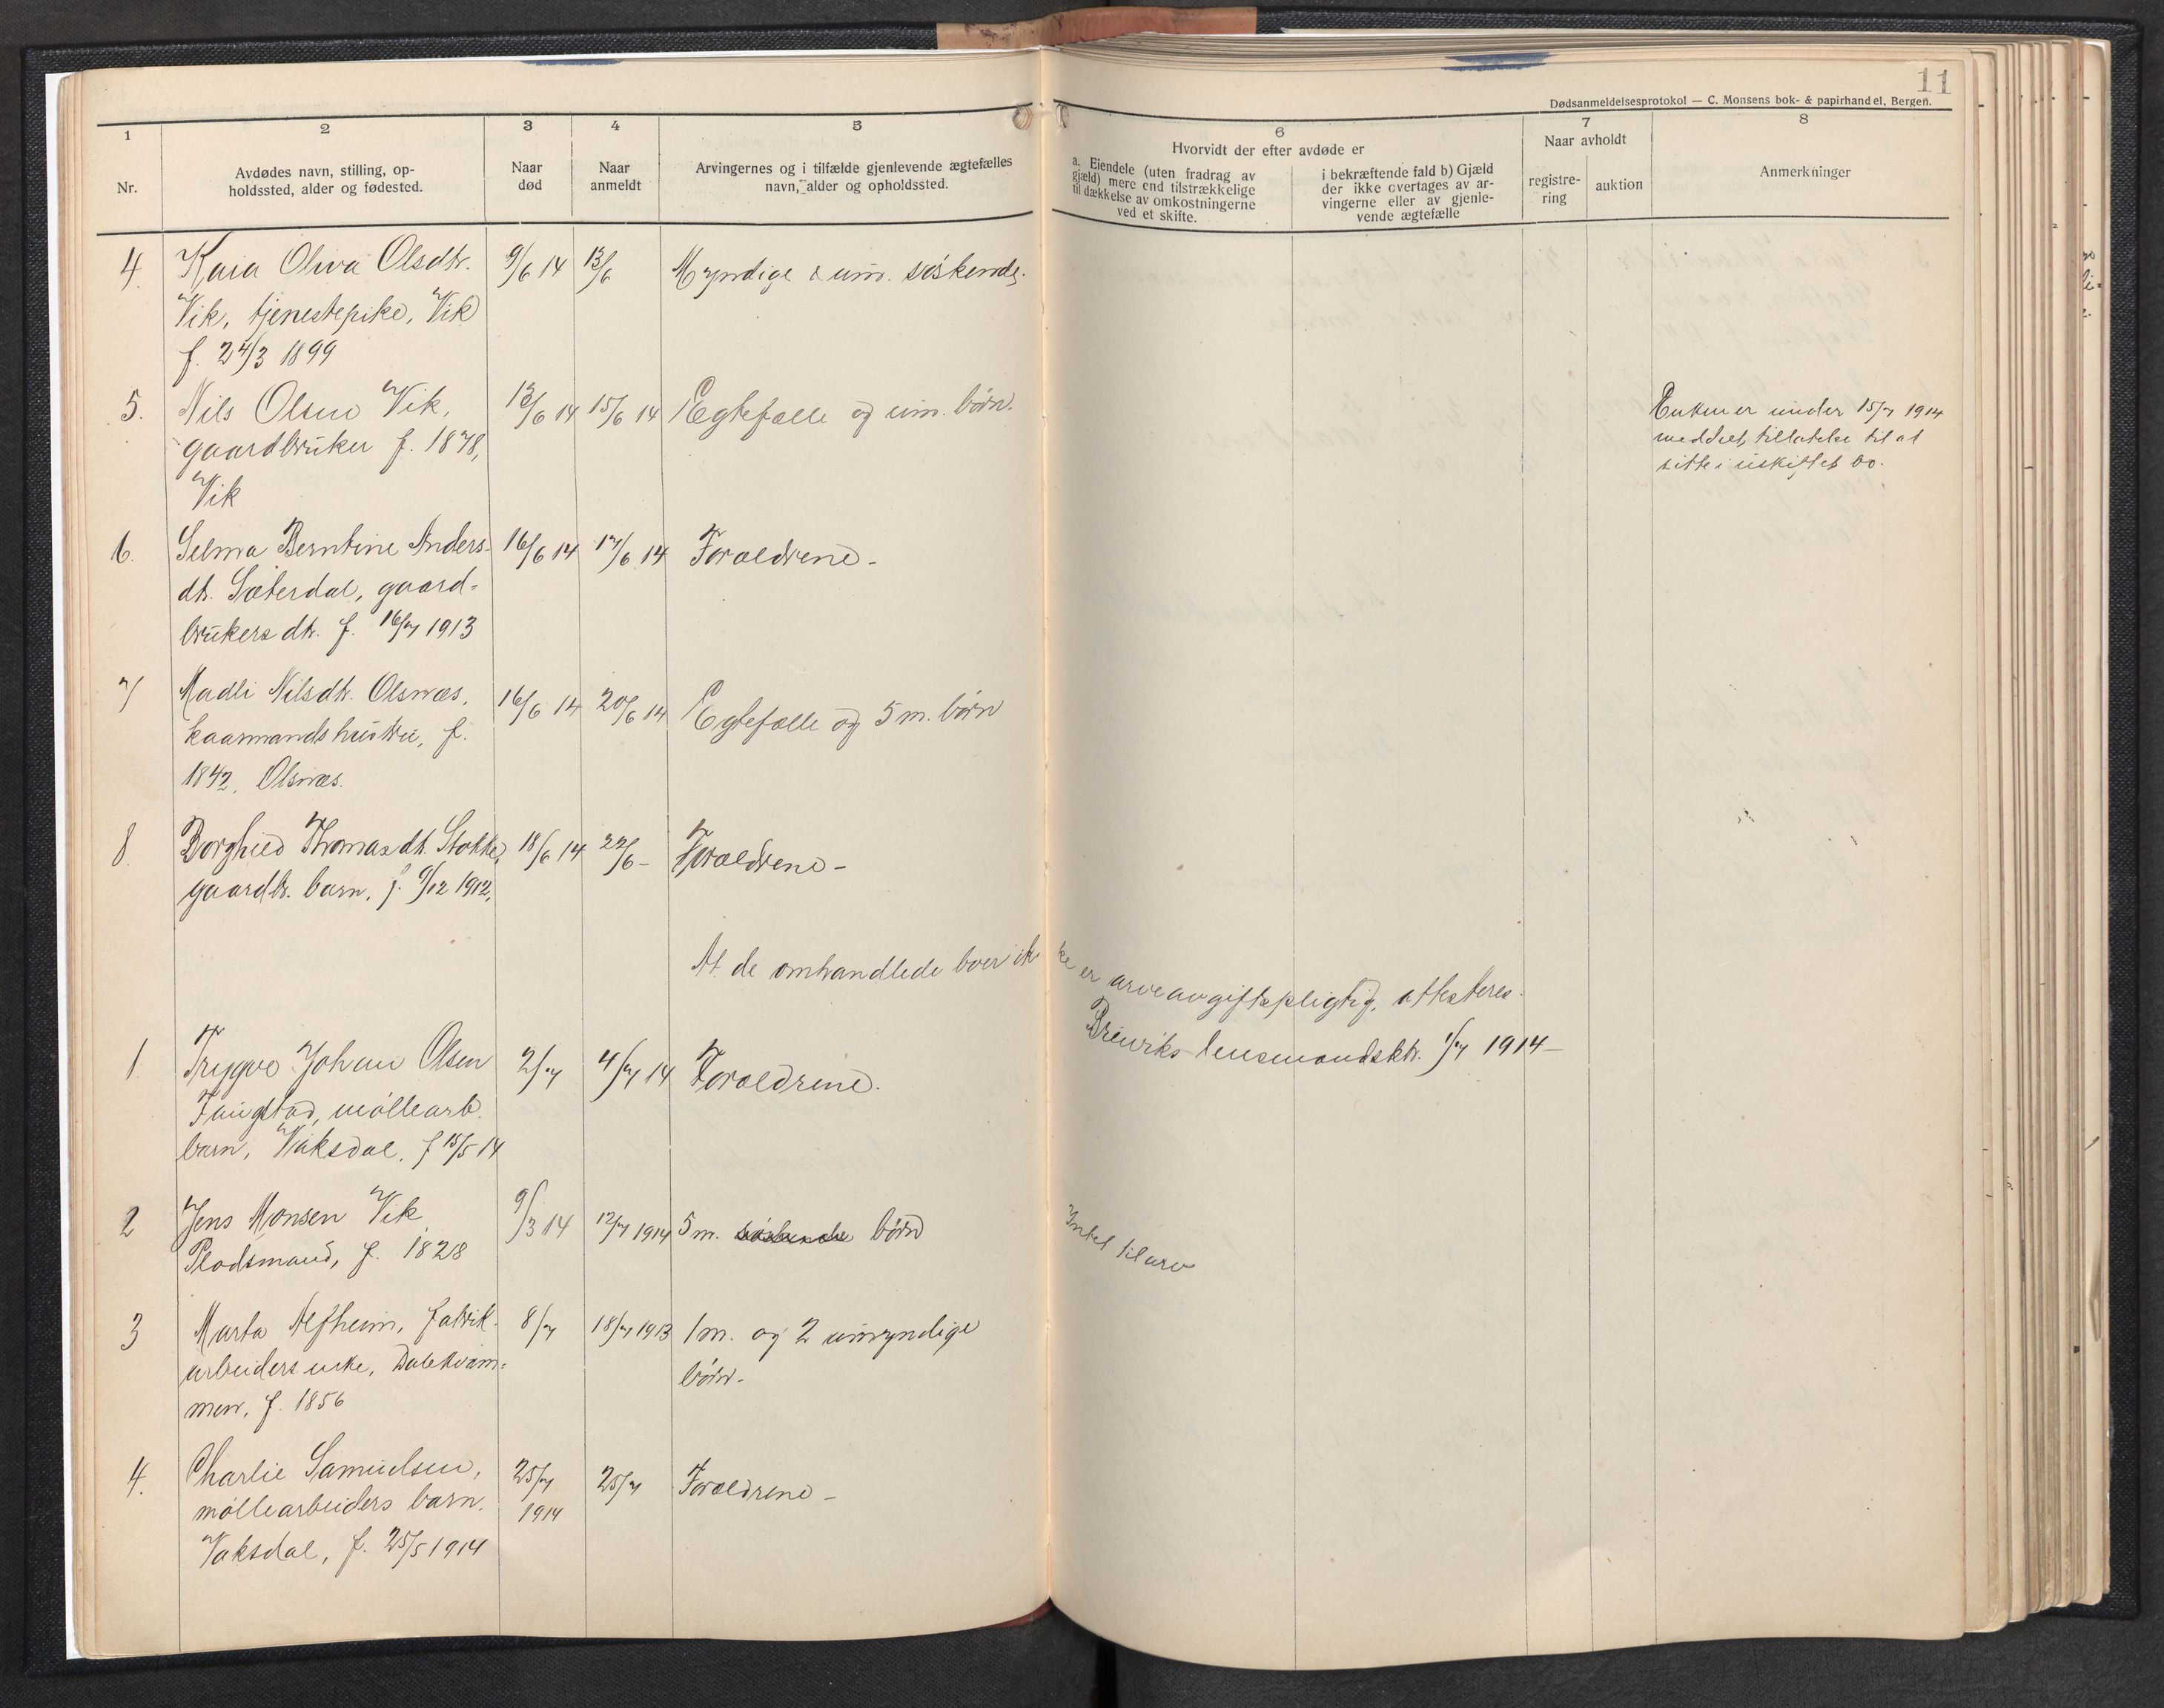 11
Dødsanmeldelsesprotokol — C. Monsens bok- & papirhandel, Bergen.
1
Nr.
2
Avdødes navn, stilling, op-
holdssted, alder og fødested.
3
Naar
død
4
Naar
anmeldt
5
Arvingernes og i tilfælde gjenlevende ægtefælles
navn, alder og opholdssted.
6
Hvorvidt der efter avdøde er
a. Eiendele (uten fradrag av
gjæld) mere end tilstrækkelige
til dækkelse av omkostningerne
ved et skifte.
i bekræftende fald b) Gjæld
der ikke overtages av ar-
vingerne eller av gjenle-
vende ægtefælle
7
Naar avholdt
registre-
ring
auktion
8
Anmerkninger
4. Kaia Oliva Olsdtr. 9/6 14 13/6 Myndige & um. søskende.
Vik, tjenestepike, Vik
f. 24/3 1899
5. Nils Olsen Vik, 13/6 14 15/6 14 Egtefælle og um. børn.
gaardbruker f. 1878,
Vik
Enken er under 15/7 1914
meddelt tillatelse til at
sitte i uskiftet bo.
6. Selma Berntine Anders- 16/6 14 17/6 14 Forældrene -
dtr. Sæterdal, gaard-
brukers dtr. f. 16/7 1913
7 Madli Nilsdtr. Olsnæs, 16/6 14 20/6 14 Egtefælle og 5 m. børn
kaarmandshustru, f.
1842, Olsnæs.
8. Borghild Thomasdtr. Stokke, 18/6 14 22/6 - Forældrene -
gaardbr. barn, f. 9/12 1912,
At de omhandlede boer ikke er arveavgiftspligtig, attesteres.
Breiviks lensmandsktr. 1/7 1914 -
1 Trygve Johan Olsen 2/7 4/7 14 Forældrene.
Faugstad, møllearb.
barn, Vaksdal, f 15/5 14
2 Jens Monsen Vik, 9/3 14 12/7 1914 5 m. søskende børn Intet til arv
Pladsmand, f. 1828
3 Marta Alfheim, fabrik- 8/7 18/7 1913 1 m. og 2 umyndige
arbeiders enke, Dalekvam- børn -
men, f. 1856
4. Charlie Samuelsen, 25/7 25/7 Forældrene -
møllearbeiders barn. 1914
Vaksdal, f. 25/5 1914